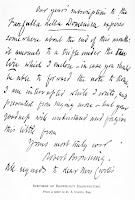 Our years' subscription to the
Fanfulla della Domenica expires
somewhere about the end of this month:
it amounts to a trifle under the
which I enclose, in case you should
be able to forward the note to
I am interrupted while I write, and
prevented from saying more - but your
goodness will understand and forgive
this
Yours most truly ever
Robert Browning.
All regards to dear Mrs
SPECIMEN OF BROWNING'S HANDWRITING.
From a letter to